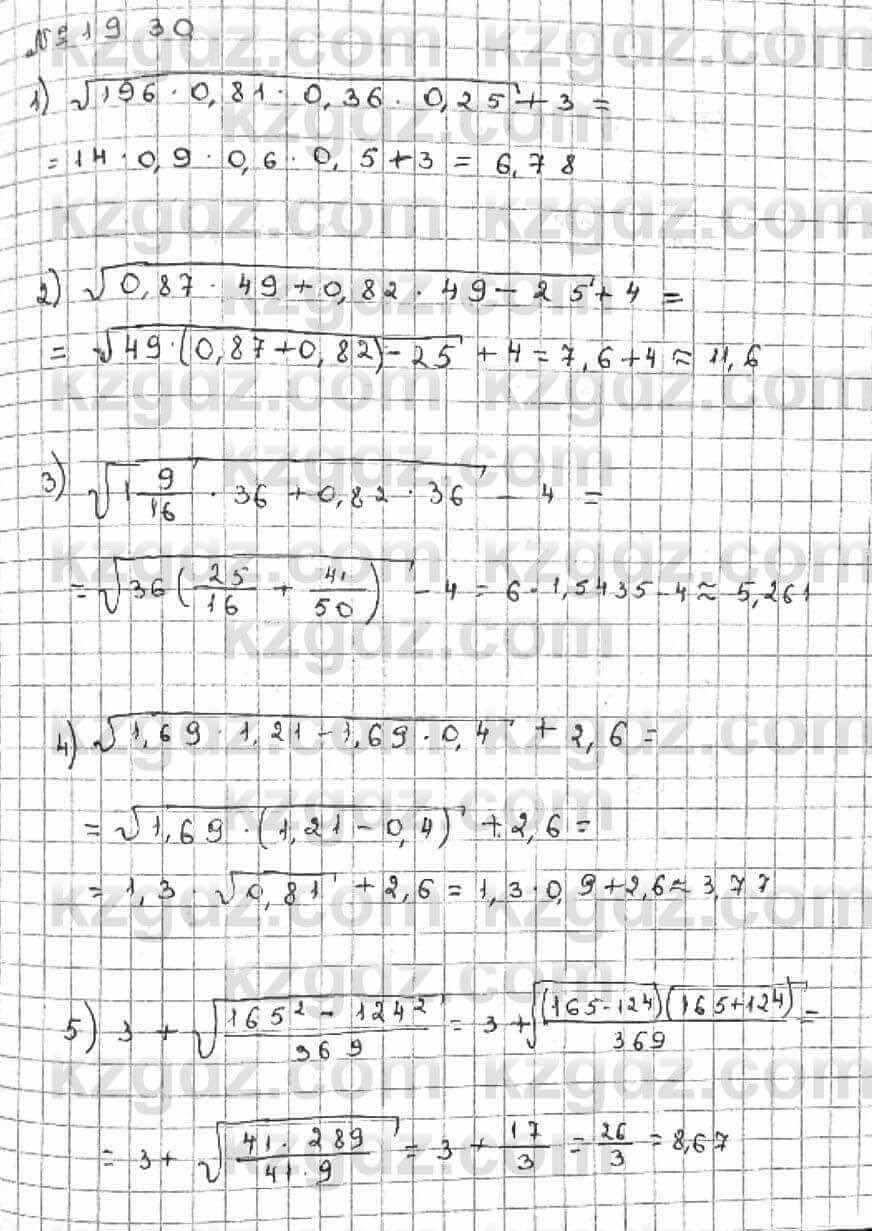 № 1930
1) √(196 · 0,81 · 0,36 · 0,25) + 3 =
= 14 · 0,9 · 0,6 · 0,5 + 3 = 6,78
2) √(0,87 · 49 + 0,82 · 49 - 25) + 4 =
= √(49 · (0,87 + 0,82) - 25) + 4 = 7,6 + 4 ≈ 11,6
3) √(1 9/16 · 36 + 0,82 · 36) - 4 =
= √(36 (25/16 + 41/50)) - 4 = 6 · 1,5435 - 4 ≈ 5,261
4) √(1,69 · 1,21 - 1,69 · 0,4) + 2,6 =
= √(1,69 · (1,21 - 0,4)) + 2,6 =
= 1,3 · √0,81 + 2,6 = 1,3 · 0,9 + 2,6 ≈ 3,77
5) 3 + √((165² - 124²)/369) = 3 + √((165-124)(165+124)/369) =
= 3 + √((41 · 289)/(41 · 9)) = 3 + 17/3 = 26/3 = 8,67
kzgdz.com